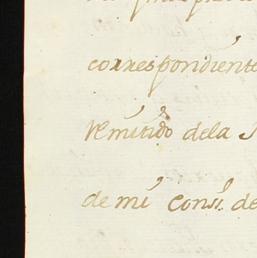 correspondiente
remitido dela S
de mi Consi. de